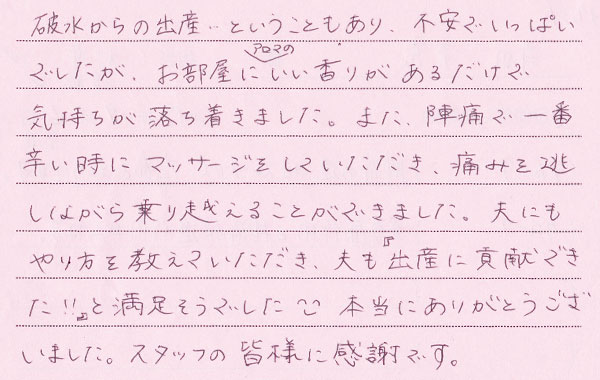 破水からの出産‥ということもあり、不安でいっぱい
でしたが、お部屋にアロマのいい香りがあるだけで
気持ちが落ち着きました。また、陣痛で一番
辛い時にマッサージをしていただき、痛みを逃
しながら乗り越えることができました。夫にも
やり方を教えていただき、夫も『出産に貢献でき
た!!』と満足そうでした 本当にありがとうござ
いました。スタッフの皆様に感謝です。